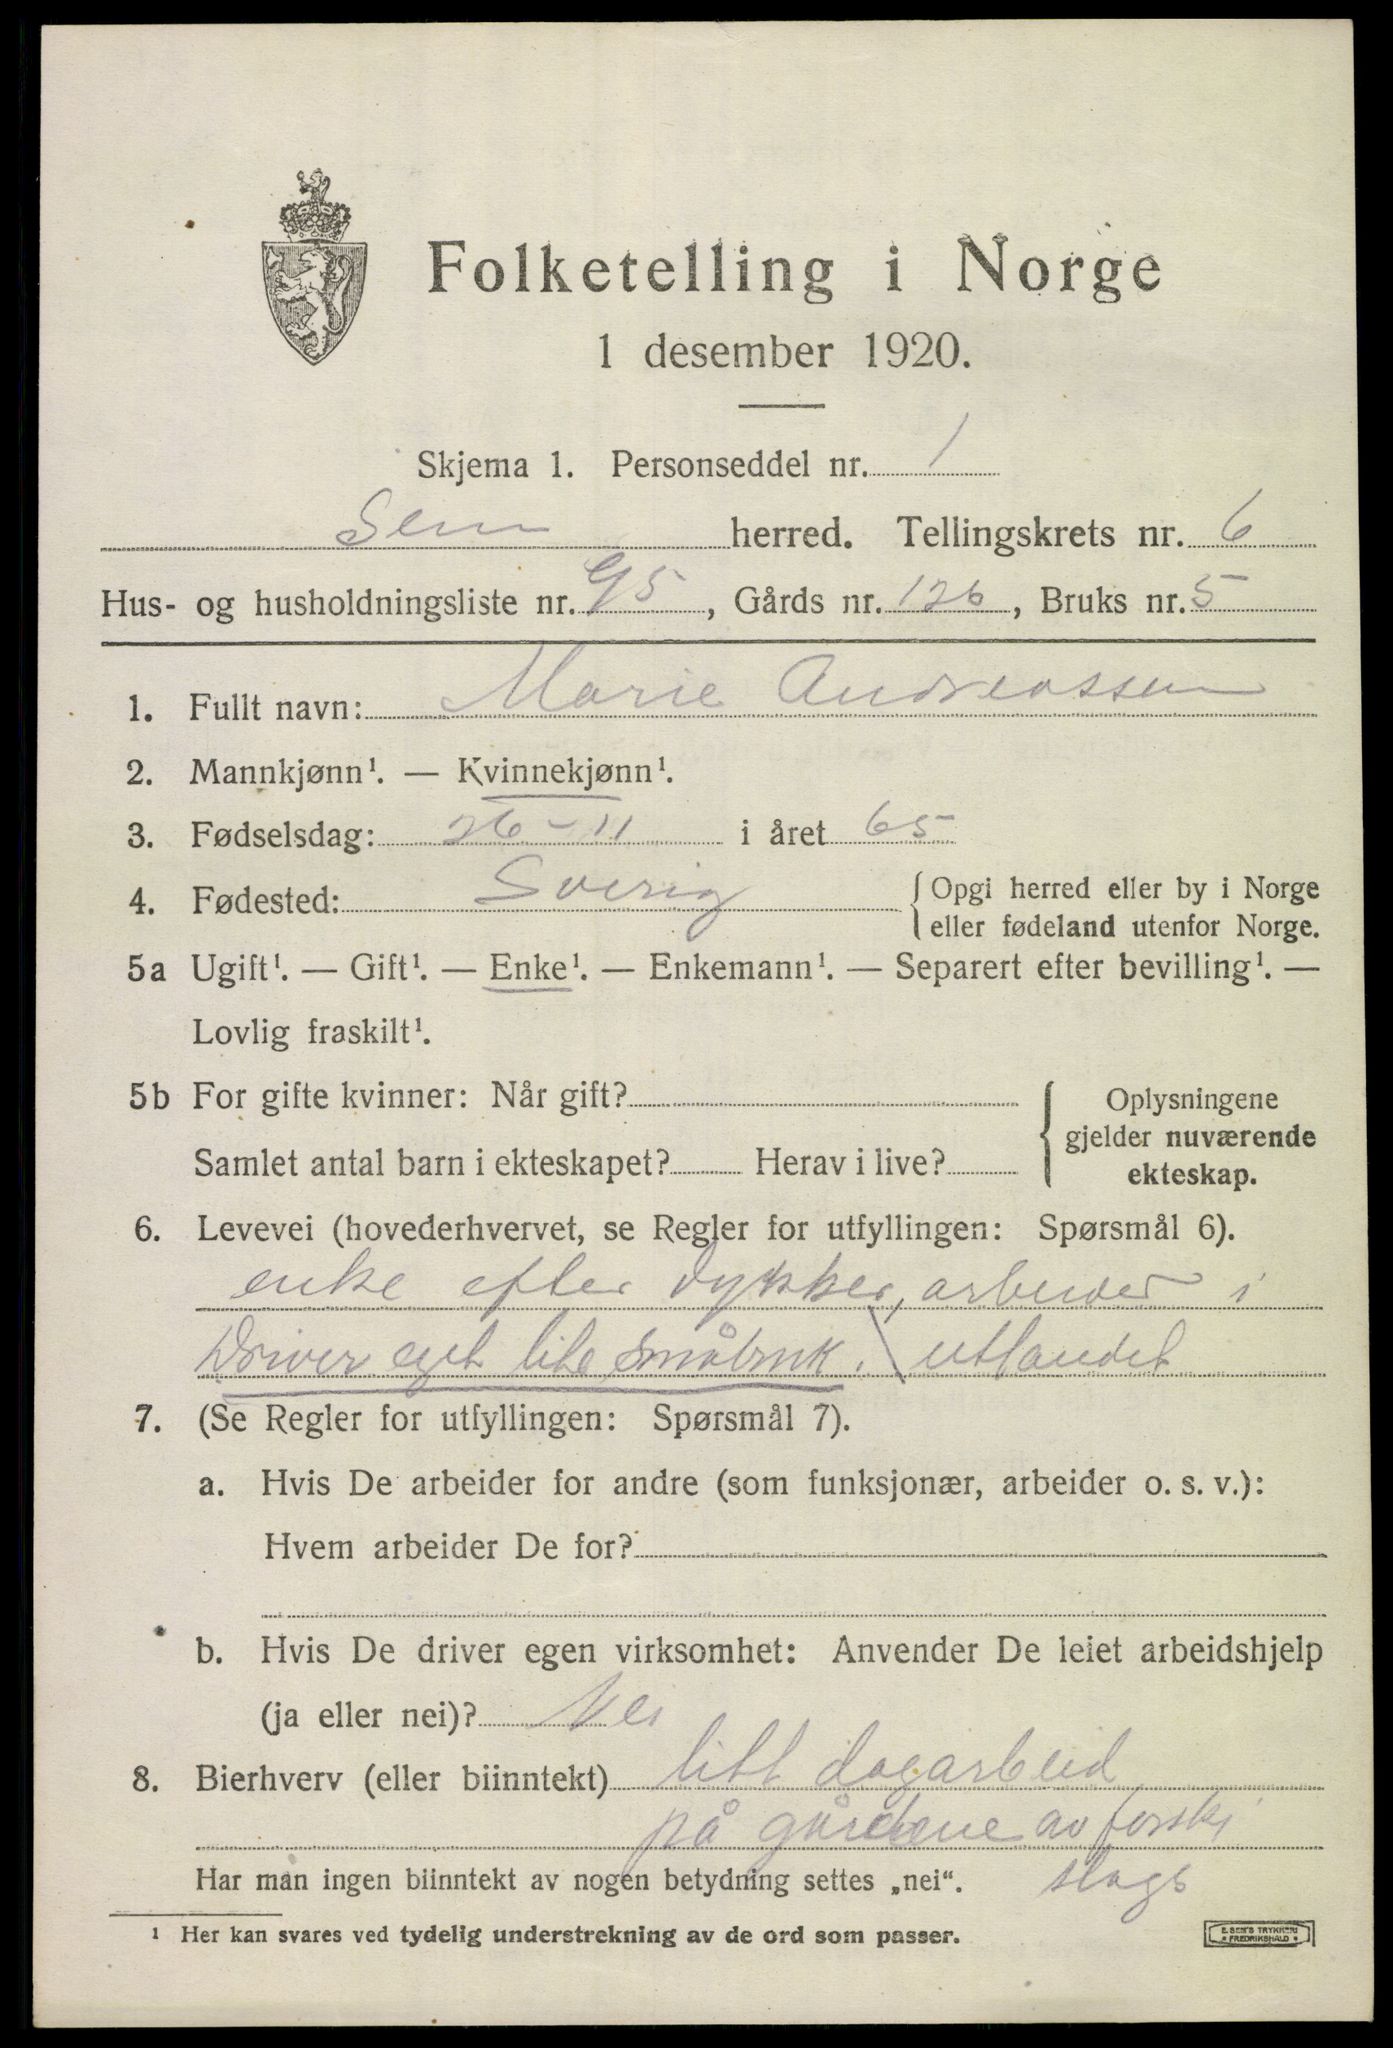 Folketelling i Norge
1 desember 1920.
Skjema 1. Personseddel nr. 1
Sem herred. Tellingskrets nr. 6
Hus- og husholdningsliste nr. 95, Gårds nr. 126, Bruks nr. 5
1. Fullt navn: Marie Andreassen
2. Mannkjønn¹. — Kvinnekjønn¹.
3. Fødselsdag: 26-11 i året 65
4. Fødested: Sverig { Opgi herred eller by i Norge
eller fødeland utenfor Norge.
5a Ugift¹. — Gift¹. — Enke¹. — Enkemann¹. — Separert efter bevilling¹. —
Lovlig fraskilt¹.
5b For gifte kvinner: Når gift?
Samlet antal barn i ekteskapet? Herav i live?
{ Oplysningene
gjelder nuværende
ekteskap.
6. Levevei (hovederhvervet, se Regler for utfyllingen: Spørsmål 6).
enke efter dykker, arbeider i
Driver eget lite småbruk. \ utlandet
7. (Se Regler for utfyllingen: Spørsmål 7).
a. Hvis De arbeider for andre (som funksjonær, arbeider o. s. v.):
Hvem arbeider De for?
b. Hvis De driver egen virksomhet: Anvender De leiet arbeidshjelp
(ja eller nei)? Nei
8. Bierhverv (eller biinntekt) litt dagarbeid
på gårdene av forskj
slags
Har man ingen biinntekt av nogen betydning settes „nei“.
¹ Her kan svares ved tydelig understrekning av de ord som passer.
E. SEM'S TRYKKERI
• FREDRIKSHALD •